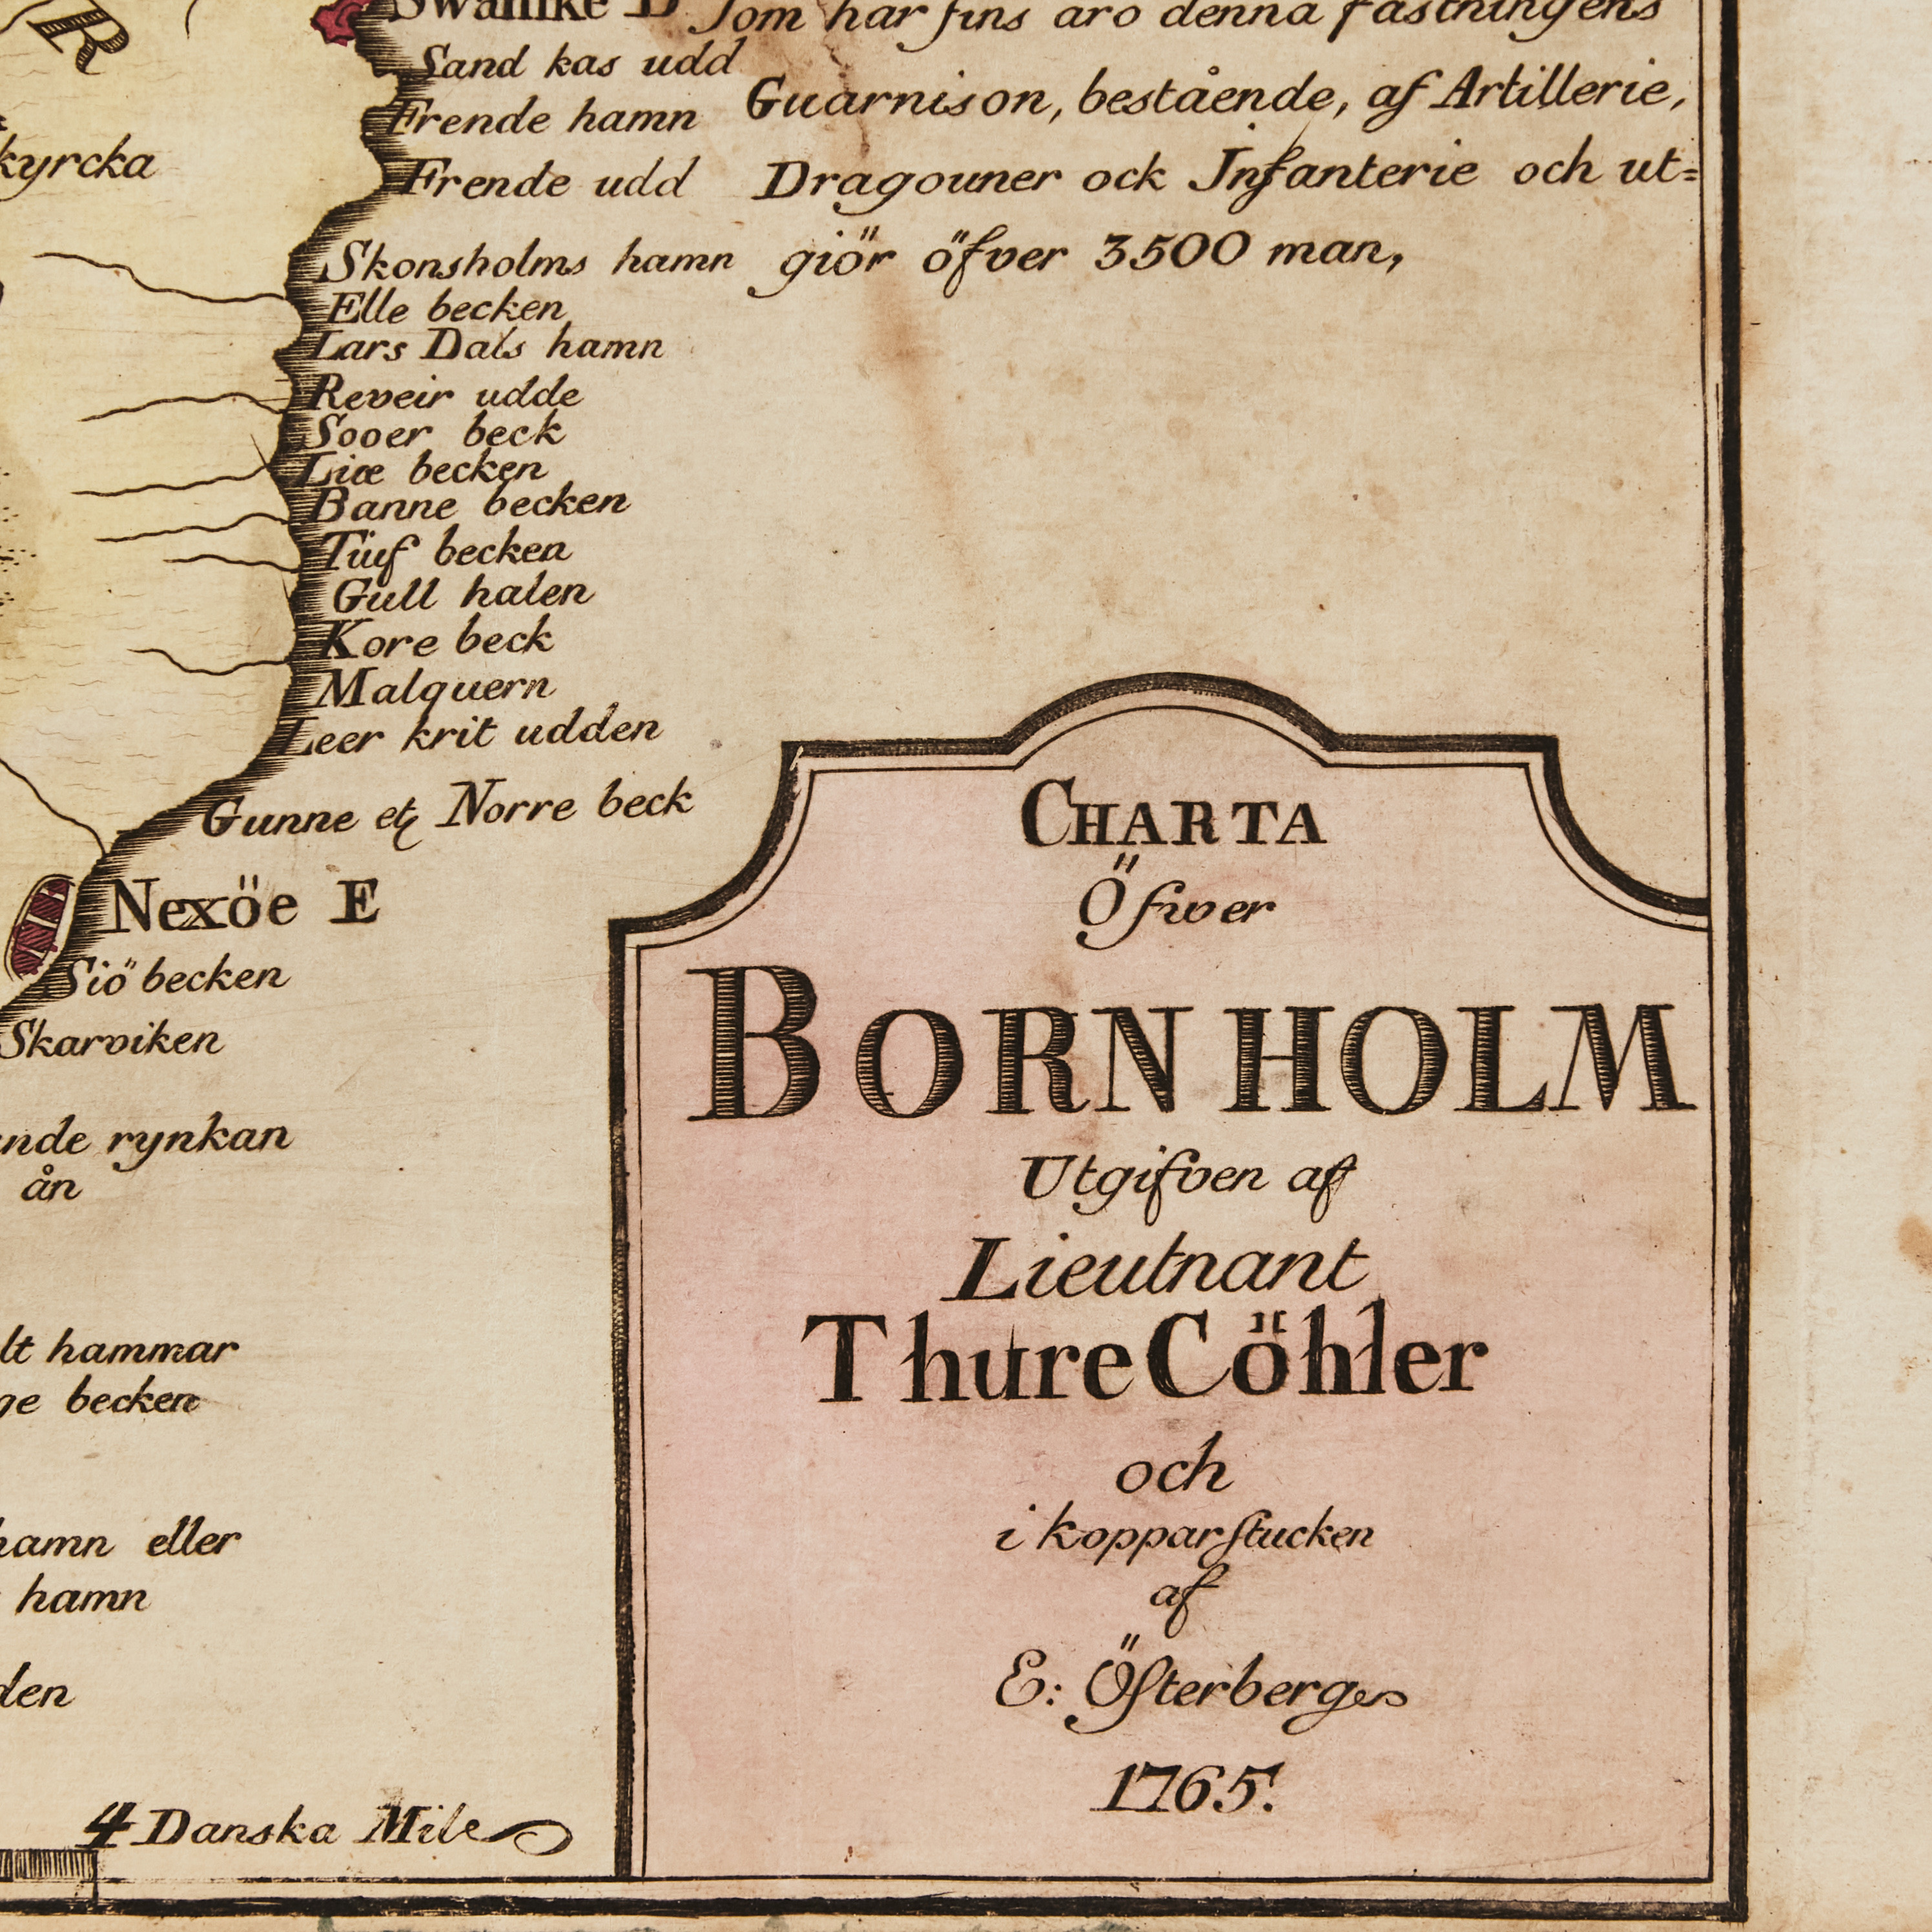 R
Swanike D
Sand kas udd
Frende hamn
kyrcka
Frende udd
Skonsholms hamn
Elle becken
Lars Dals hamn
Reveir udde
Sooer beck
Liæ becken
Banne becken
Tüf becken
Gull halen
Kore beck
Malquern
Leer krit udden
Gunne et Norre beck
Nexöe E
Siö becken
Skarviken
nde rynkan
ån
lt hammar
ge becken
hamn eller
hamn
den
4 Danska Mile
som här fins äro denna fästningens
Guarnison, bestående, af Artillerie,
Dragouner ock Infanterie och ut=
giör öfver 3500 man,
CHARTA
Öfwer
BORNHOLM
Utgifven af
Lieutnant
Thure Cöhler
och
i kopparstucken
af
E: Österberg
1765.